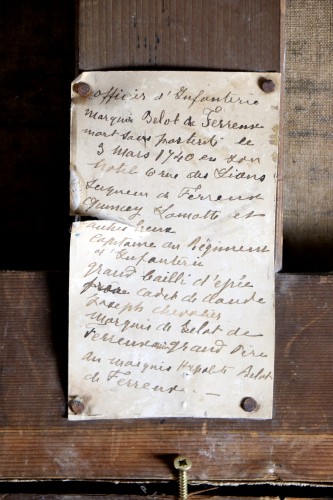 officier d'Infanterie
Marquis Belot de Ferreux
mort sans postérité le
3 mars 1740 en son
hotel rue des Lions
Seigneur de Ferreux
Quincey Lamotte et
autres lieux
Capitaine au Régiment
d'Infanterie
grand bailli d'épée
cadet de claude
Joseph chevalier
marquis de Belot de
Ferreux grand Père
au marquis Hypolite Belot
de Ferreux. —